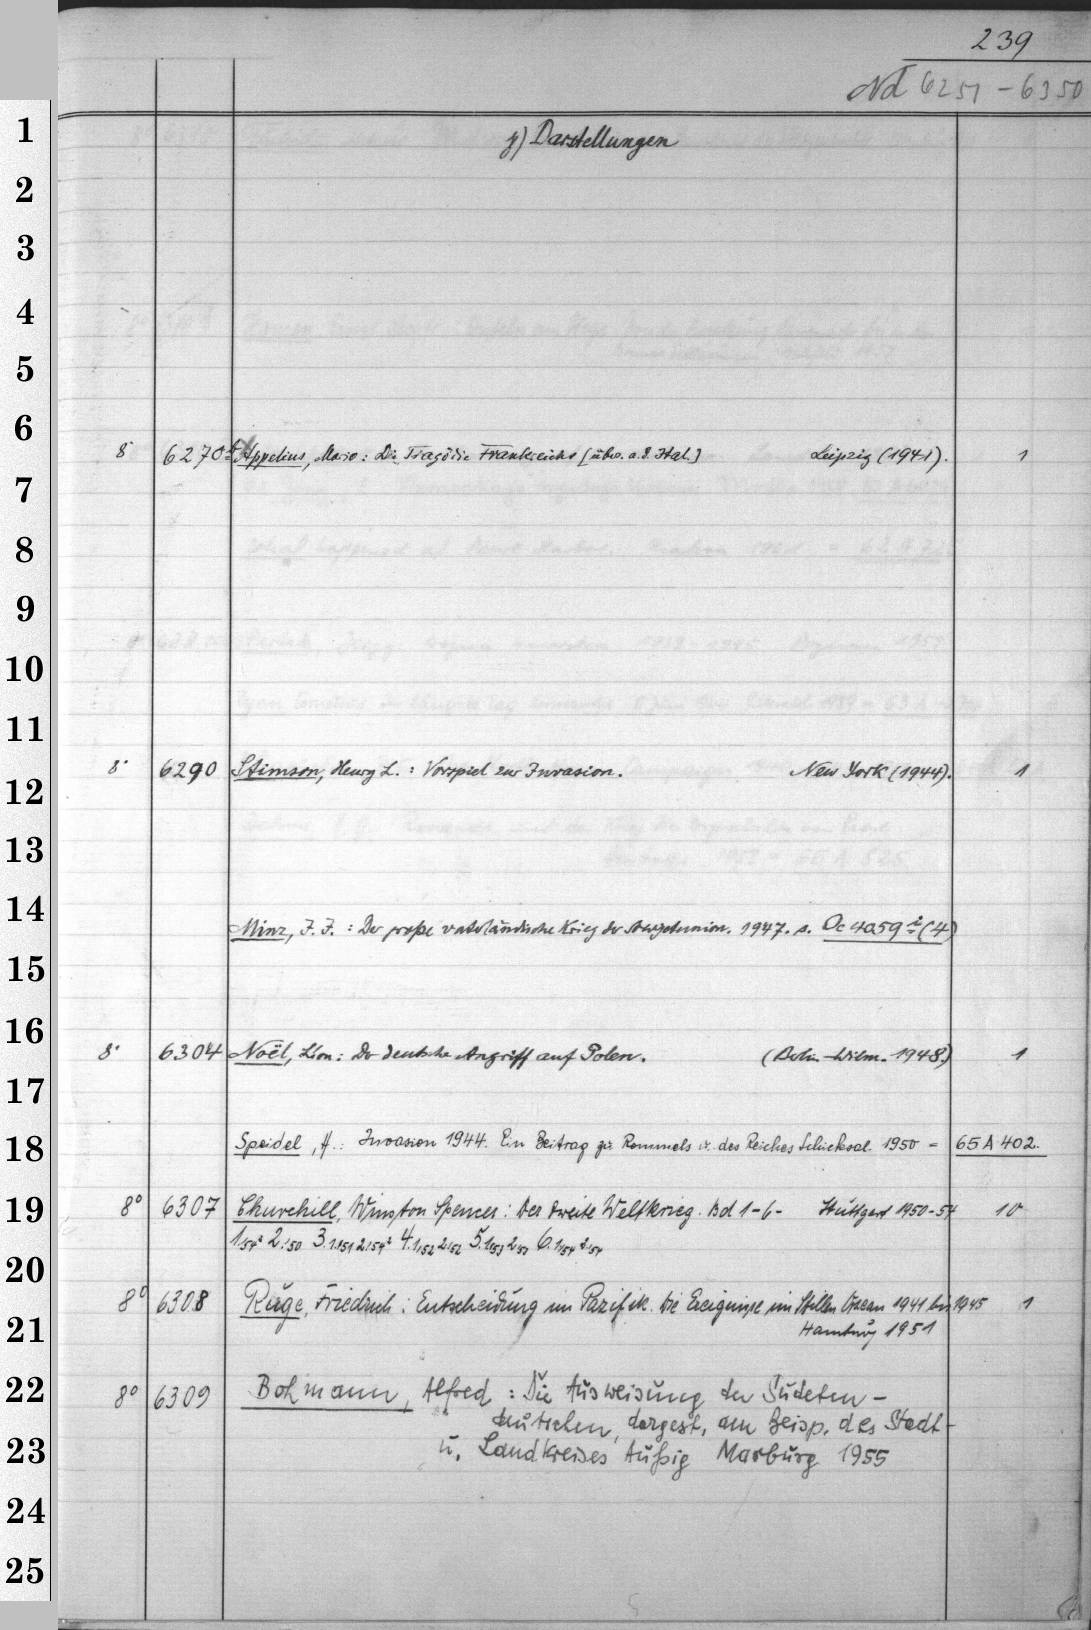 239
Nd 6251-6350
1
γ) Darstellungen
2
3
4
5
6
8° 6270 Appelius, Mario: Die Tragödie Frankreichs [übers. a. d. Ital.] Leipzig (1941). 1
7
8
9
10
11
8° 6290 Stimson, Henry L.: Vorspiel zur Invasion. New York (1944). 1
12
13
14
Minz, J. J.: Der große vaterländische Krieg der Sowjetunion. 1947. s. Oc 4059 i (4)
15
16
8° 6304 Noël, Léon: Der deutsche Angriff auf Polen. (Berlin-Wilm. 1948.) 1
17
18
Speidel, H.: Invasion 1944. Ein Beitrag zu Rommels u. des Reiches Schicksal. 1950 = 65 A 402.
19
8° 6307 Churchill, Winston Spencer: Der zweite Weltkrieg. Bd 1-6- Stuttgart 1950-54 10
20
8° 6308 Ruge, Friedrich: Entscheidung im Pazifik. Die Ereignisse im Stillen Ozean 1941 bis 1945 1
21
Hamburg 1951
22
8° 6309 Bohmann, Alfred: Die Ausweisung der Sudeten-
deutschen, dargest. am Beisp. des Stadt-
23
u. Landkreises Außig Marburg 1955
24
25